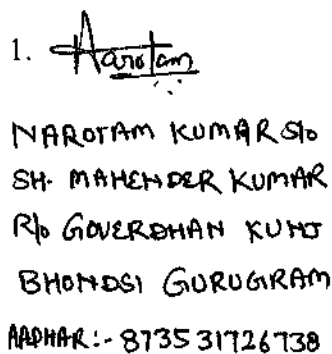 1. Narotam
NAROTAM KUMAR S/o
SH. MAHENDER KUMAR
R/o GOVERDHAN KUNJ
BHONDSI GURUGRAM
AADHAR:- 873531726738